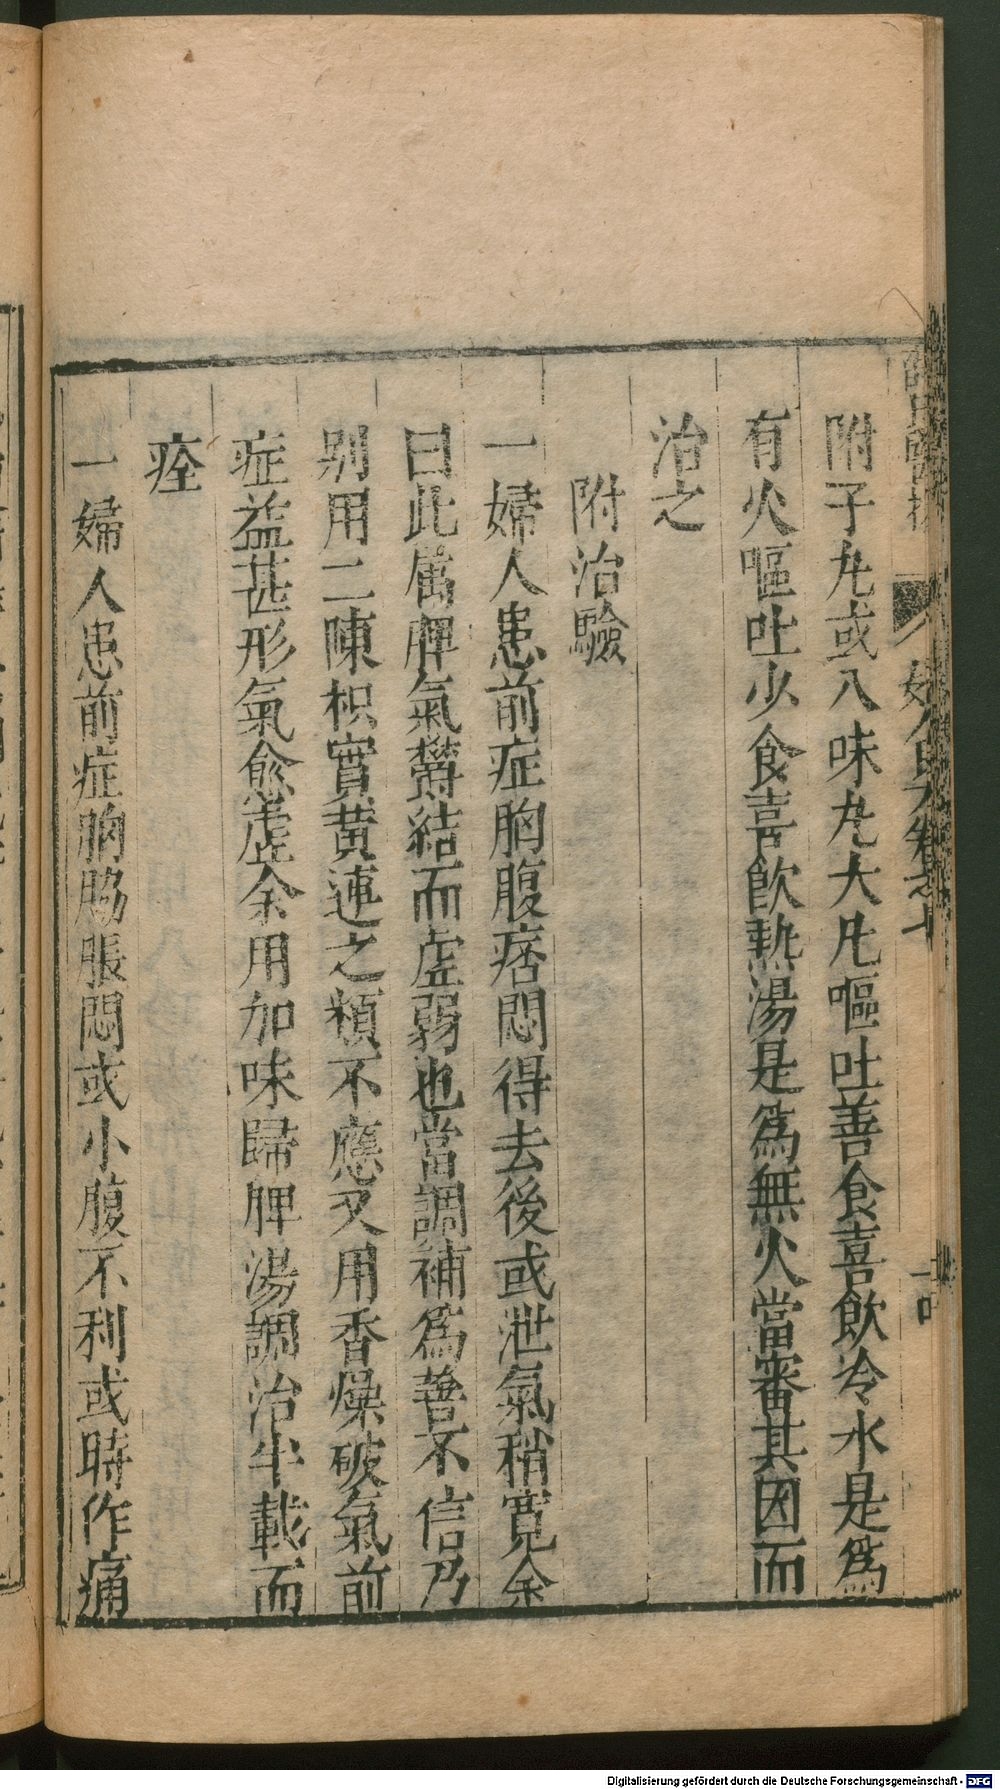 附子丸或八味丸大凡嘔吐善食喜飲冷水是爲
有火嘔吐少食喜飲熱湯是爲無火當審其因而
治之
附治驗
一婦人患前症胸腹痞悶得去後或泄氣稍寛余
曰此屬脾氣欝結而虚弱也當調補爲善不信乃
别用二陳枳實黄連之類不應又用香燥破氣前
症益甚形氣愈虚余用加味歸脾湯調治半載而
痊
一婦人患前症胸脇脹悶或小腹不利或時作痛
Digitalisierung gefördert durch die Deutsche Forschungsgemeinschaft - DFG